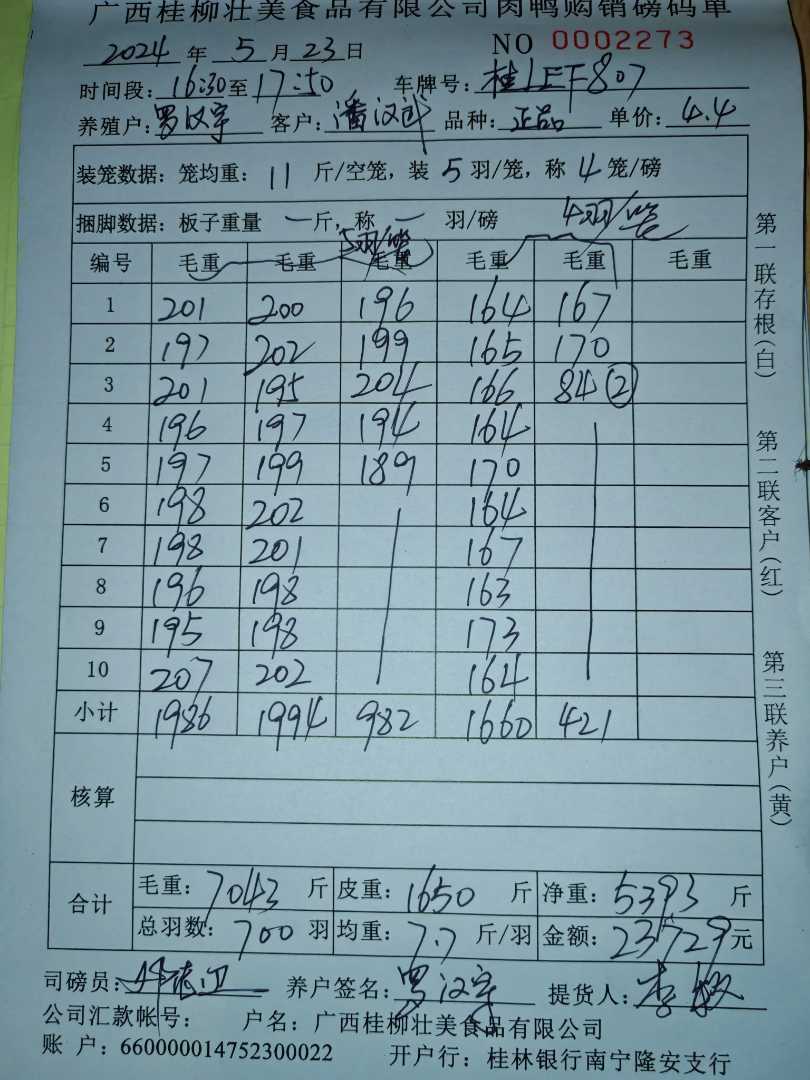 广西桂柳壮美食品有限公司肉鸭购销磅码单
2024 年 5 月 23 日 NO 0002273
时间段: 16:30 至 17:50 车牌号: 桂
养殖户: 罗汉宇 客户: 潘汉武 品种: 正品 单价: 4.4
装笼数据: 笼均重: 11 斤/空笼, 装 5 羽/笼, 称 4 笼/磅
捆脚数据: 板子重量 一 斤, 称 一 羽/磅 4羽/笼
5羽/笼
编号 毛重 毛重 毛重 毛重 毛重 毛重
1 201 200 196 164 167
2 197 202 199 165 170
3 201 195 204 166 84 ②
4 196 197 194 164
5 197 199 189 170
6 198 202 164
7 198 201 167
8 196 198 163
9 195 198 173
10 207 202 164
小计 1986 1994 982 1660 421
核算
合计 毛重: 7043 斤 皮重: 1650 斤 净重: 5393 斤
总羽数: 700 羽 均重: 7.7 斤/羽 金额: 23729 元
司磅员: 养户签名: 罗汉宇 提货人: 李
公司汇款帐号: 户名: 广西桂柳壮美食品有限公司
账 户: 660000014752300022 开户行: 桂林银行南宁隆安支行
第一联存根(白)
第二联客户(红)
第三联养户(黄)